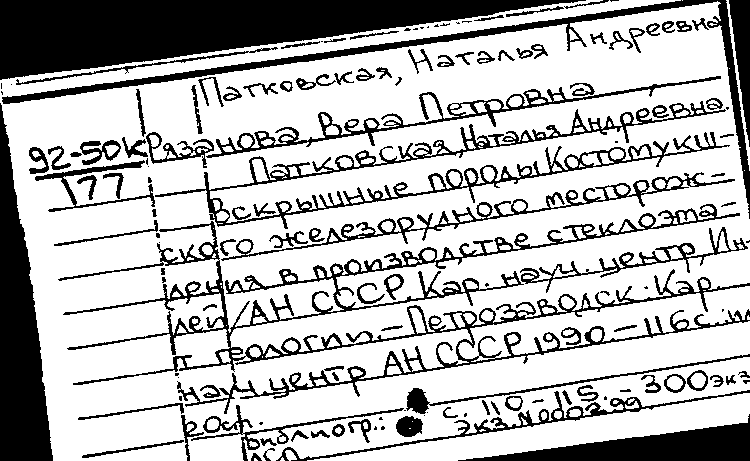 Патковская, Наталья Андреевна
92-50К
177
Рязанова, Вера Петровна
Патковская, Наталья Андреевна.
Вскрышные породы Костомукш-
ского железорудного месторож-
дения в производстве стеклоэма-
лей / АН СССР. Кар. науч. центр, Ин-
т геологии. – Петрозаводск: Кар.
науч. центр АН СССР, 1990. – 116 с.: ил.
20см.
Библиогр.: с. 110-115. – 300 экз
Экз. N 000299.